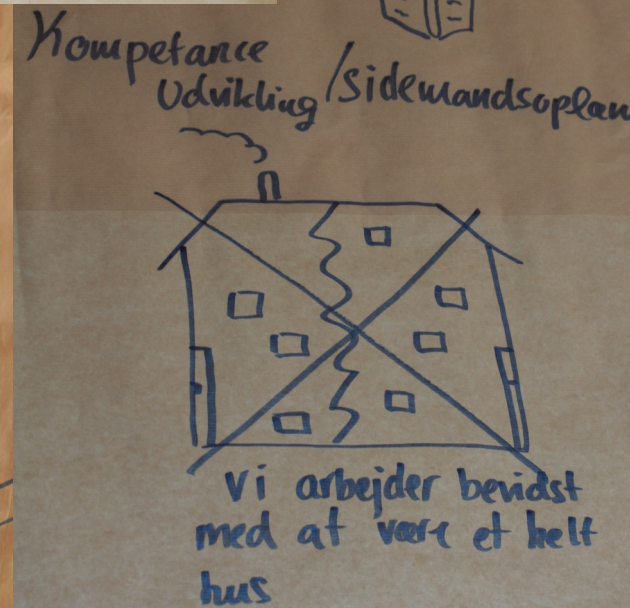 Kompetance
Udvikling /sidemandsoplæn
Vi arbejder bevidst
med at være et helt
hus